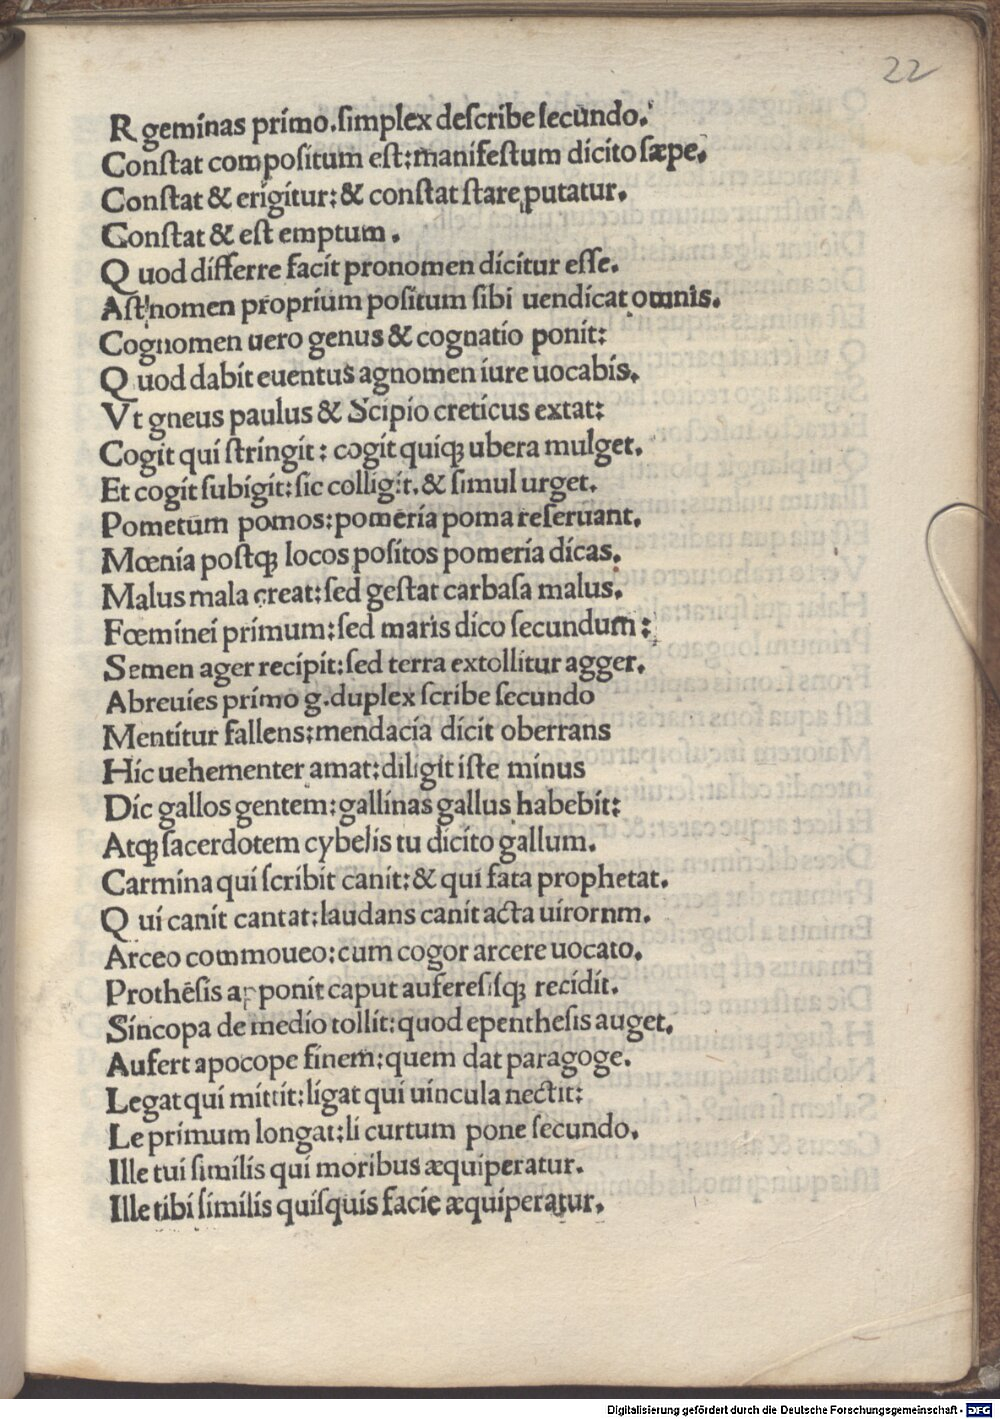 22
R geminas primo.simplex deſcribe ſecundo.
Conſtat compoſitum eſt:manifeſtum dicito ſæpe.
Conſtat & erigitur:& conſtat ſtare putatur.
Conſtat & eſt emptum.
Q uod differre facit pronomen dicitur eſſe.
Aſt nomen proprium poſitum ſibi uendicat omnis.
Cognomen uero genus & cognatio ponit:
Q uod dabit euentus agnomen iure uocabis.
Vt gneus paulus & Scipio creticus extat:
Cogit qui ſtringit: cogit quiqꝫ ubera mulget.
Et cogit ſubigit:ſic colligit.& ſimul urget.
Pometum pomos:pomeria poma reſeruant.
Mœnia poſtqꝫ locos poſitos pomeria dicas.
Malus mala creat:ſed geſtat carbaſa malus.
Fœminei primum:ſed maris dico ſecundum:
Semen ager recipit:ſed terra extollitur agger.
Abreuies primo g.duplex ſcribe ſecundo
Mentitur fallens:mendacia dicit oberrans
Hic uehementer amat:diligit iſte minus
Dic gallos gentem:gallinas gallus habebit:
Atqꝫ ſacerdotem cybelis tu dicito gallum.
Carmina qui ſcribit canit:& qui fata prophetat.
Q ui canit cantat:laudans canit acta uirornm.
Arceo commoueo:cum cogor arcere uocato.
Protheſis apponit caput aufereſiſqꝫ recidit.
Sincopa de medio tollit:quod epentheſis auget.
Aufert apocope finem:quem dat paragoge.
Legat qui mittit:ligat qui uincula nectit:
Le primum longat:li curtum pone ſecundo.
Ille tui ſimilis qui moribus æquiperatur.
Ille tibi ſimilis quiſquis facie æquiperatur.
Digitalisierung gefördert durch die Deutsche Forschungsgemeinschaft - DFG